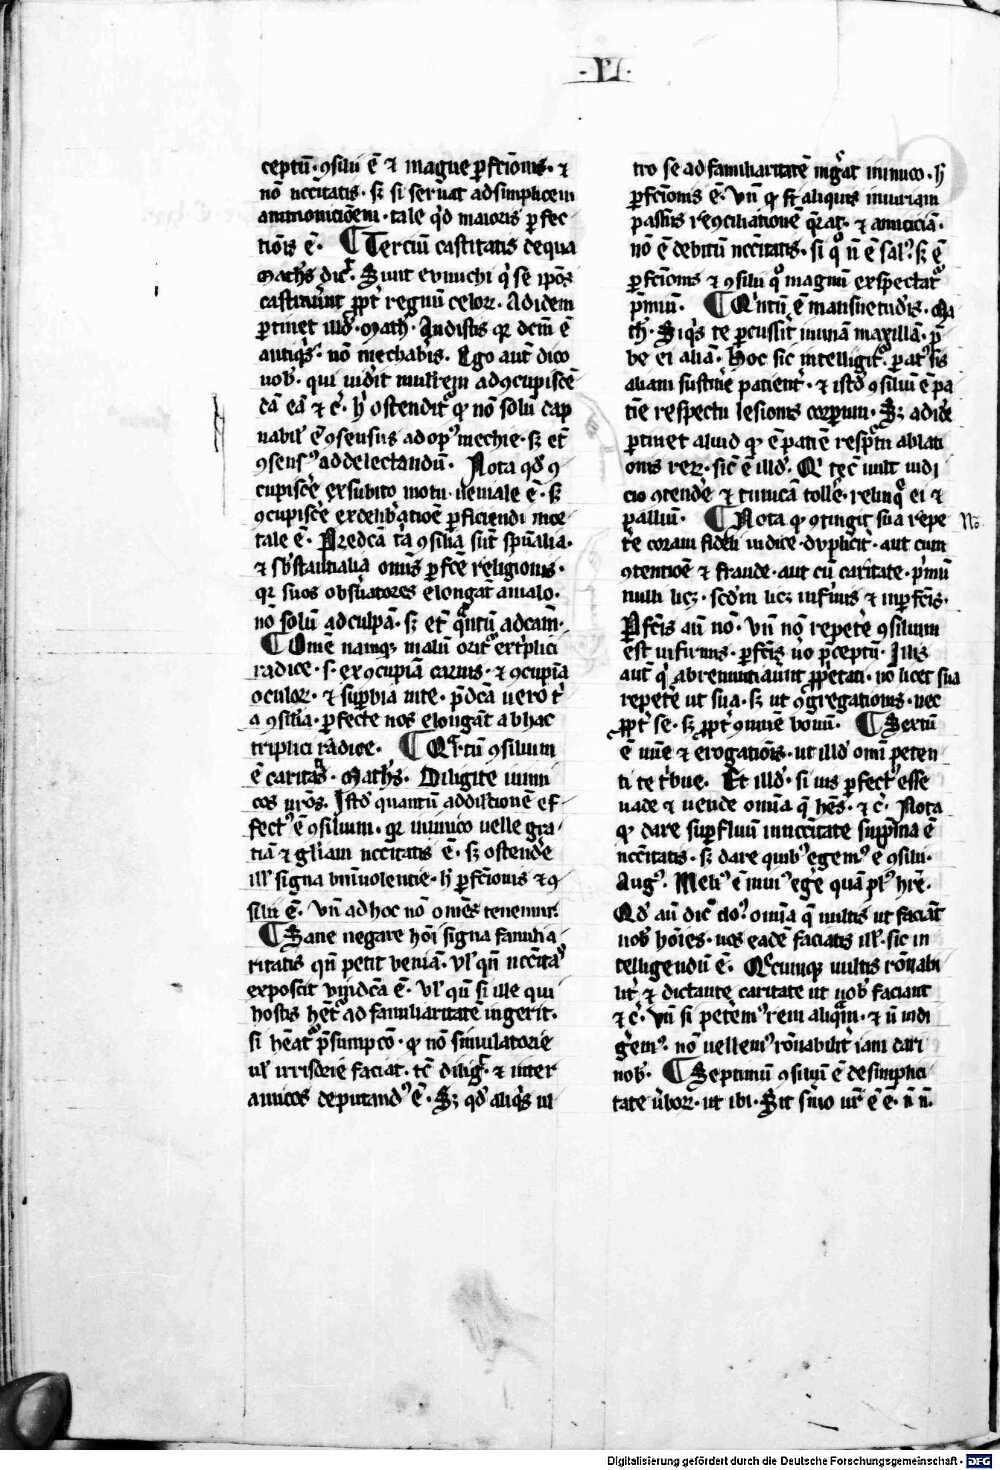 ·VI·
ceptū · ꝯsiliū ē ⁊ magne ꝑfc̄iōnis · ⁊
nō ncc̄itatis · sꝫ si seruat᷑ ad simplicem
ammonicōem · tale qd̓ maioris ꝑfec
tiōis ē · ¶ Terciū castitatis de qua
Math̓s dic̓ · Sunt eunuchi q̓ se ip̄os
castrauer̄t ꝓpt̓ regnū celoꝝ · Ad idem
ꝑtinet illd̓ · Math̓ · Audistis qꝛ dc̄m ē
antiq̓s · nō mechab̓is · Ego aut̄ dico
uob̓ · qui uid̓it mulierem ad ꝯcupiscē
dā eā ⁊ c̓ · h̓ ostendit᷑ ꝙ nō solū dāp
nabil̓ ē ꝯsensus ad opꝰ mechie · sꝫ et̄
ꝯsensꝰ ad delectandū · Nota qd̓ ꝯ
cupisc̓e ex subito motu · ueniale ē · sꝫ
ꝯcupisc̓e ex delib̓atiōe ꝑficiendi mor
tale ē · Predc̄a tr̓a ꝯsilia sūt sp̄ualia ·
⁊ sb̓stantialia om̄is ꝑfc̄e religionis ·
qꝛ suos obs̓uatores elongāt a malo ·
nō solū ad culpā · sꝫ et̄ qͣntū ad cām ·
¶ Omē namqꝫ malū orit᷑ ex tⁱplici
radice · s · ex ꝯcupia carnis · ⁊ ꝯcupia
oculoꝝ · ⁊ suꝑbia uite · p̄dc̄a uero tⁱ
a ꝯsilia · ꝑfecte nos elongāt ab hac
triplici radice · ¶ Qͣrtū ꝯsilium
ē caritas · Math̓s · Diligite inimi
cos ur̄os · Istd̓ quantū ad dilc̄ionē ef
fectꝰ ē ꝯsilium · qꝛ inimico uelle gra
tiā ⁊ gl̓iam ncc̄itatis ē · sꝫ ostend̓e
ill̓ signa bn̄iuolentie · h̓ ꝑfc̄ionis ⁊ ꝯ
siliū ē · Vn̄ ad hoc nō om̄es tenemur ·
¶ Sane negare ho̅i signa familia
ritatis qn̄ petit ueniā · ul̓ qn̄ ncc̄itas
exposcit uindc̄a ē · Ul̓ qn̄ si ille qui
hostis het̓ ad familiaritatē ingerit ·
si heat᷑ p̄sumpcō · ꝙ nō simulatorie
ul̓ irrisorie faciat · tc̄ dilig᷑ · ⁊ inter
amicos deputandꝰ ē · Sꝫ qd̓ aliq̓s ul
tro se ad familiaritatē ing̓at inimico · h̓
ꝑfc̄ionis ē · Vn̄ ꝙ st̓ aliquis iniuriam
passus recꝯciliationē q̓rat · ⁊ amiciciā ·
nō ē debitū ncc̄itatis · si qͦ n̄ ē salꝰ · sꝫ ē
ꝑfc̄ionis ⁊ ꝯsiliū qͦ magnū exspectat᷑
p̓miū · ¶ Qⁱntū ē mansuetudīs · Ma
th̓ · Siq̓s te ꝑcuss̓it in unā maxillā · p̄
be ei aliā · Hoc sic intelligit᷑ · ꝑatꝰ sis
aliam sustin̓e patient̓ · ⁊ istd̓ ꝯsiliū ē pa
tīe respectu lesionis corꝑum · Sꝫ ad id̓e
ꝑtinet aliud ꝙ ē patīe resp̄tu ablati
onis reꝝ · sic̄ ē illd̓ · Qⁱ tec̄ uult iudi
cio ꝯtend̓e ⁊ tunicā toll̓e · relinqͦ ei ⁊
pallium · ¶ Nota ꝙ ꝯtingit sua repe
t̓e coram fideli iudice · duplicit̓ · aut cum
ꝯtentiōe ⁊ fraude · aut cū caritate · p̓mū
nulli licꝫ · scd̄m licꝫ infir̄is ⁊ inꝑfc̄is ·
Pfc̄is aū nō · Vn̄ nō repet̓e ꝯsilium
est infirmis · ꝑfc̄is u̓o p̄ceptū · Illis
aut̄ q̓ abrenuntiauunt ꝓp̓etati · nō licet sua
repet̓e ut sua · sꝫ ut ꝯgregationis · nec
ꝓpt̓ se · sꝫ ꝓpt̓ ꝯmune bonū · ¶ Sextū
ē mīe ⁊ erogatiōis · ut illd̓ omī peten
ti te tⁱbue · Et illd̓ · si uis ꝑfectꝰ esse
uade ⁊ uende omīa q̄ hēs · ⁊ c̓ · Nota
ꝙ dare suꝑfluū in ncc̄itate sup̄p̄īa ē
ncc̄itatis · sꝫ dare quibꝰ egemꝰ ē ꝯsiliū ·
Augꝰ · Meliꝰ ē minꝰ eg̓e quā plꝰ hr̄e ·
Qd̓ aū dic̄ doꝰ · omīa q̄ uultis ut faciāt
uob̓ ho̅ies · uos eadē faciatis ill̓ · sic in
telligendū ē · Qͤcunqꝫ uultis rōnabi
lit̓ ⁊ dictante caritate ut uob̓ faciant
⁊ c̓ · Vn̄ si petemꝰ rem aliqͣm · ⁊ n̄ indi
g̓emꝰ · nō uellemꝰ rōnabilit̓ iam dari
nob̓ · ¶ Septimū ꝯsiliū ē de simplici
tate u̓boꝝ · ut ibi · Sit s̓mo ur̓ ē ē · n̄ n̄ ·
No
Digitalisierung gefördert durch die Deutsche Forschungsgemeinschaft · DFG